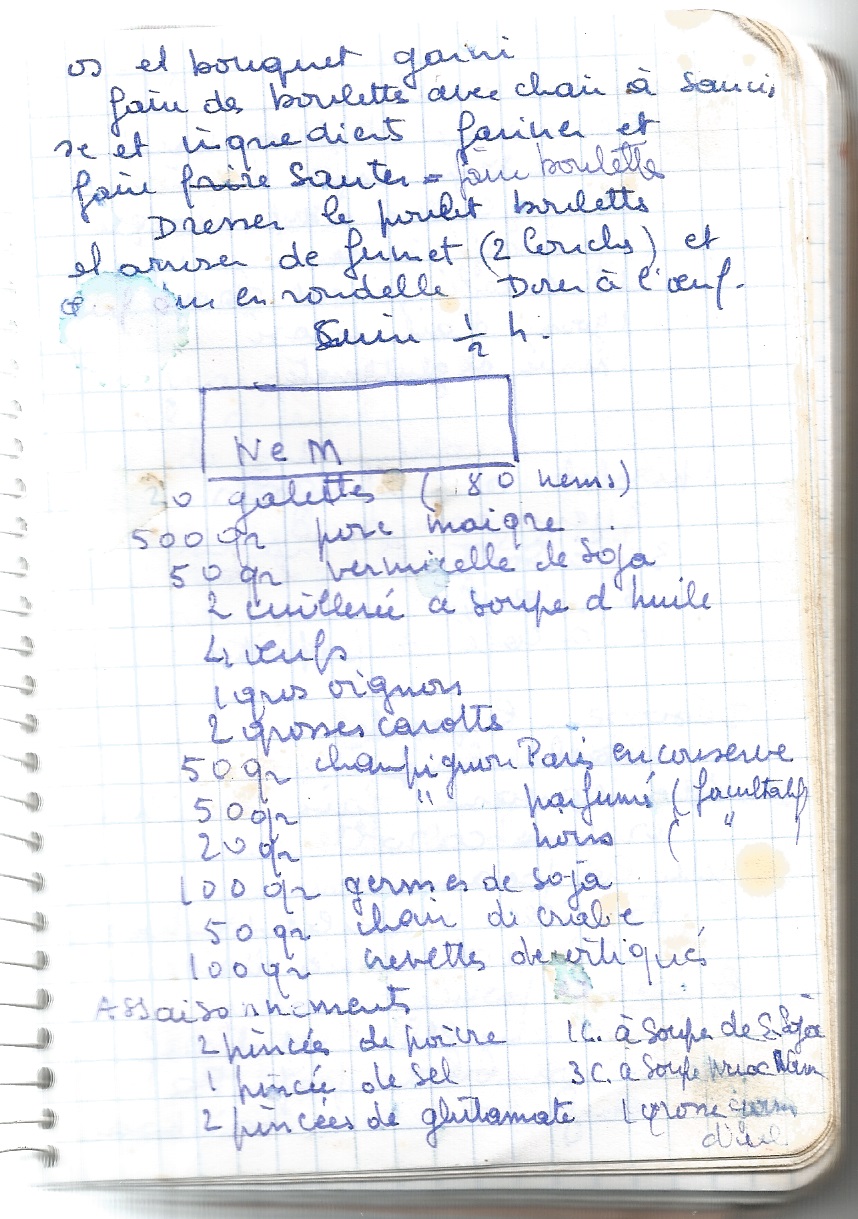 os et bouquet garni
faire des boulette avec chair à saucis
se et ingredients fariner et
faire frire sauter = faire boulette
Dresser le poulet boulette
et arroser de fumet (2 louches) et
en rondelle Dorer à l'œuf.
Cuire 1/2 h.
NeM
20 galettes (80 nems)
500 gr porc maigre
50 gr vermicelle de soja
2 cuillerée à soupe d'huile
4 œufs
1 gros oignons
2 grosses carottes
50 gr champignon Paris en conserve
50 gr " parfumé (facultatif
20 gr noirs ( " )
100 gr germes de soja
50 gr chair de crabe
100 gr crevettes decortiqués
Assaisonnements
2 pincées de poivre 1 C. à soupe de S. Soja
1 pincée de sel 3 C. à soupe Nuoc Mam
2 pincées de glutamate 1 grosse gousse
d'ail